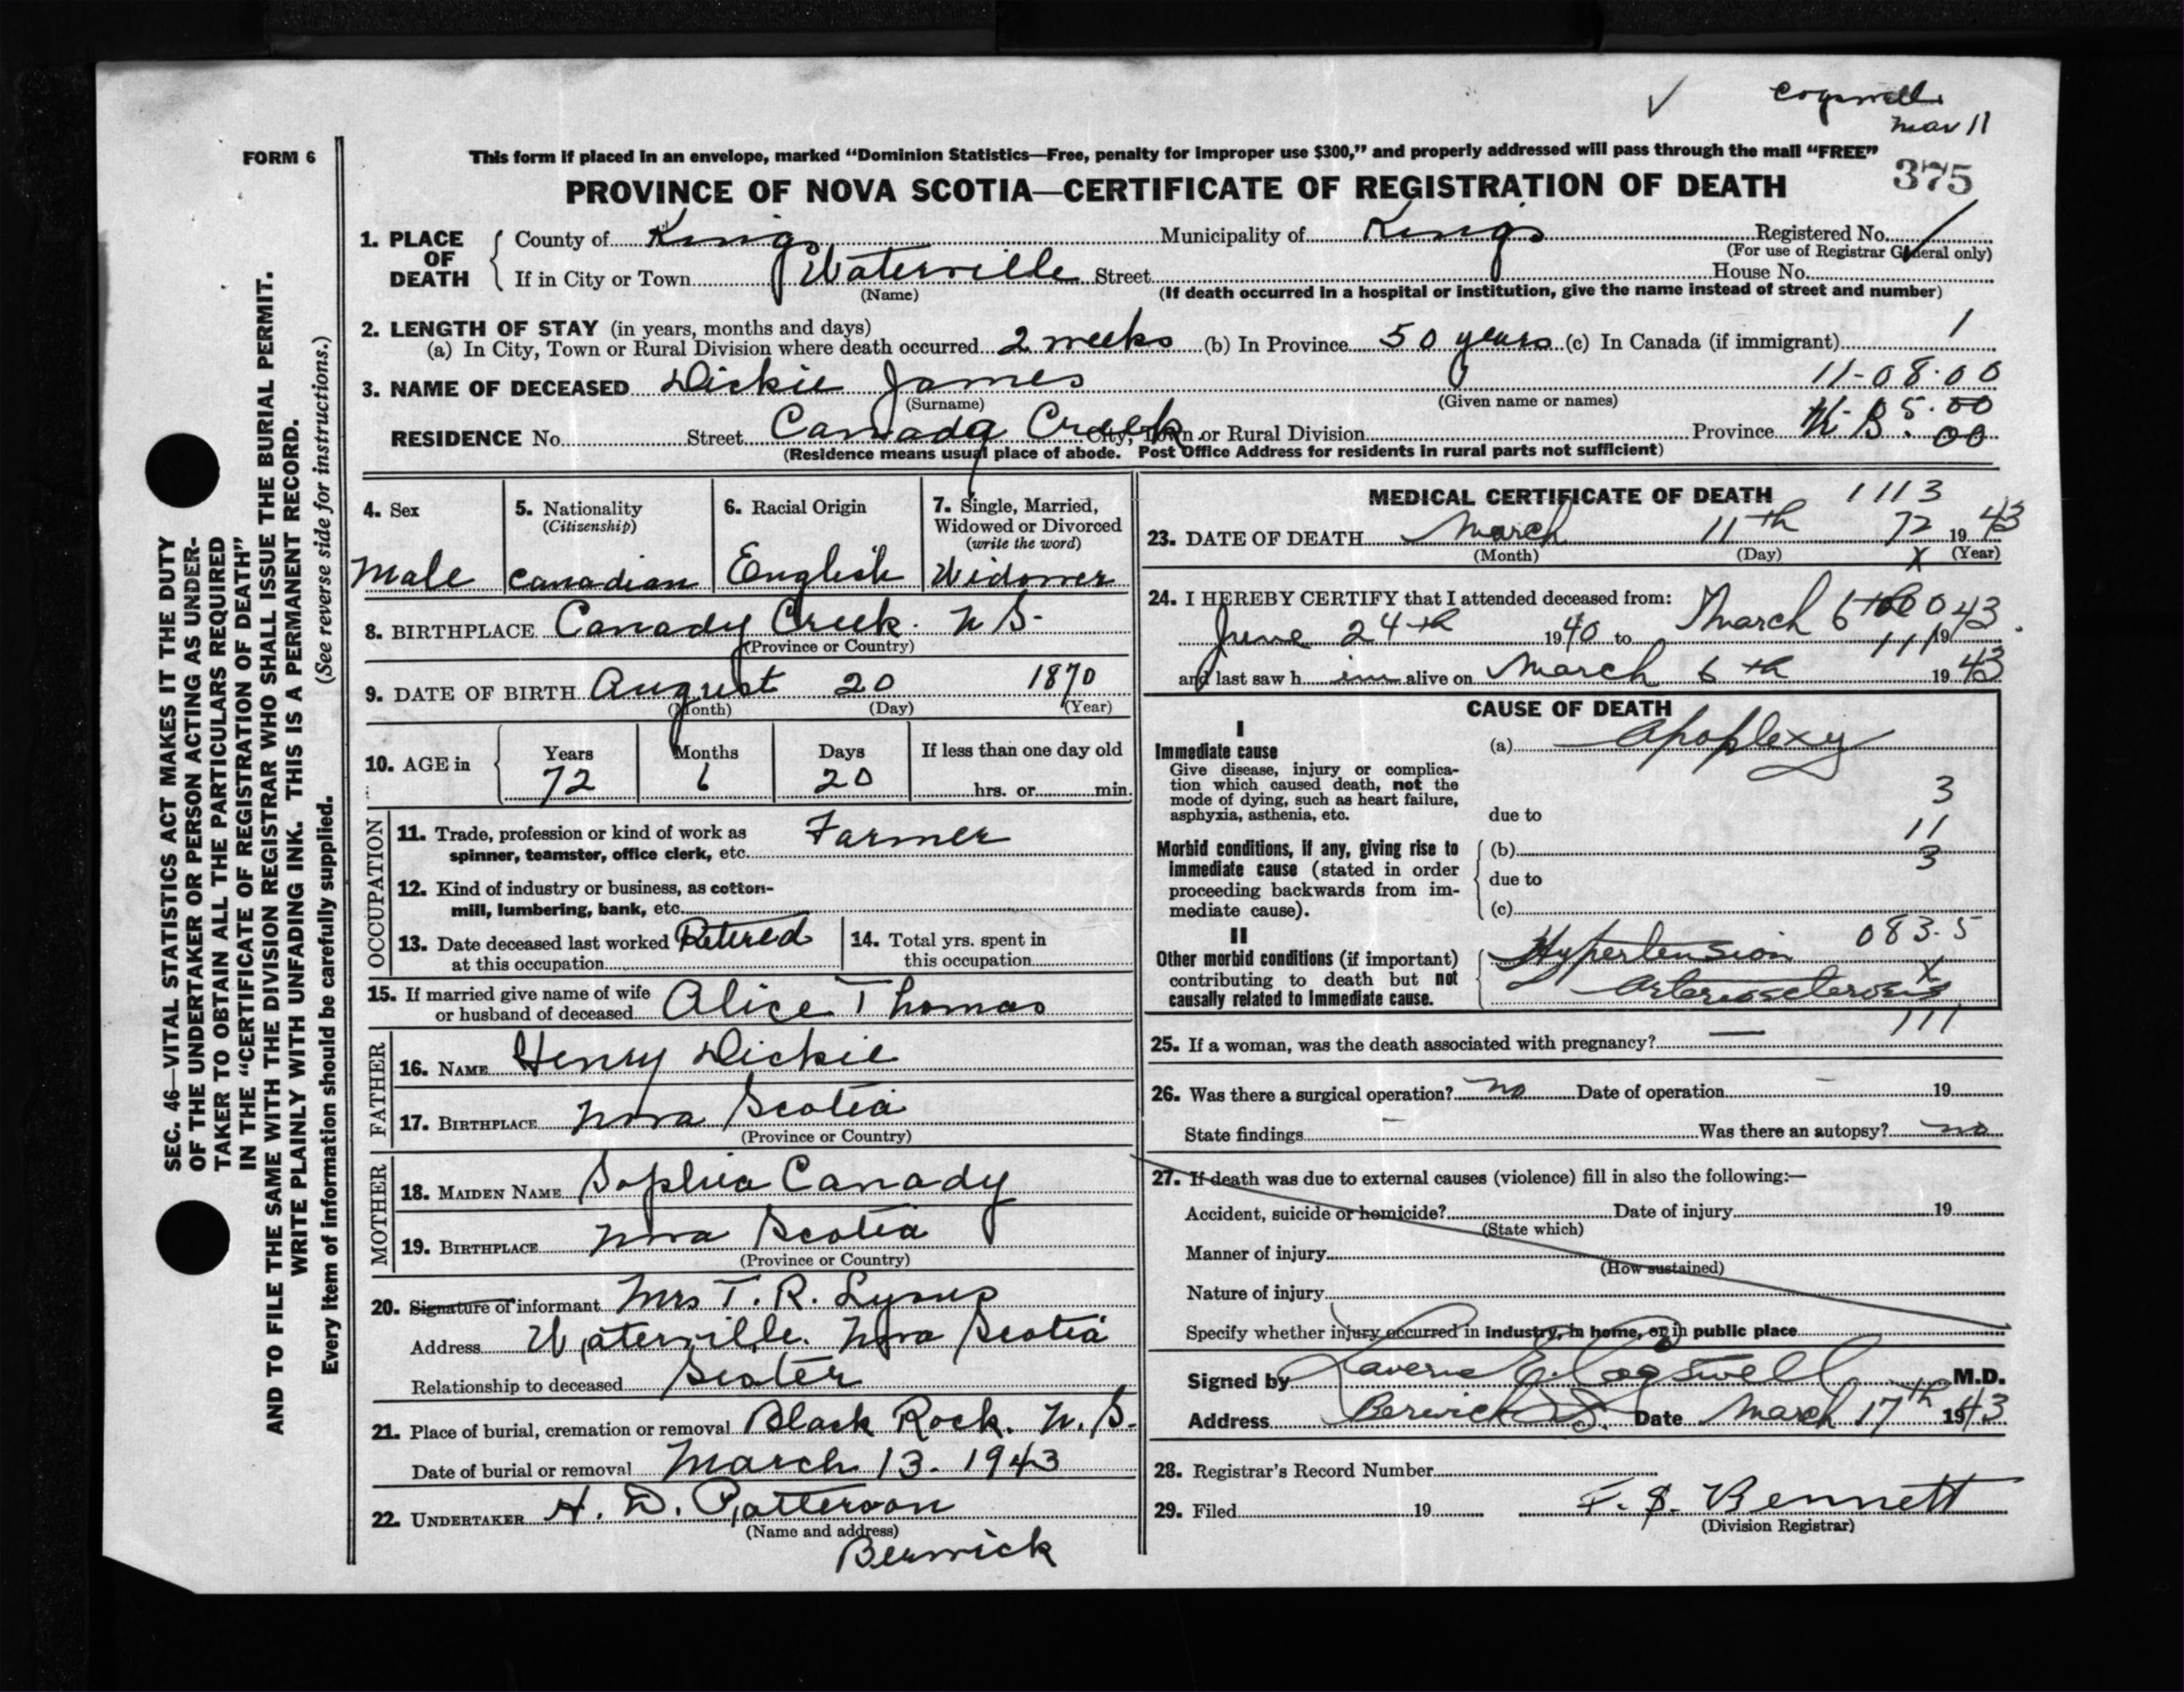 Cogswell
Mar 11
FORM 6
This form if placed in an envelope, marked "Dominion Statistics—Free, penalty for improper use $300," and properly addressed will pass through the mail "FREE"
375
PROVINCE OF NOVA SCOTIA—CERTIFICATE OF REGISTRATION OF DEATH
SEC. 46—VITAL STATISTICS ACT MAKES IT THE DUTY
OF THE UNDERTAKER OR PERSON ACTING AS UNDER-
TAKER TO OBTAIN ALL THE PARTICULARS REQUIRED
IN THE "CERTIFICATE OF REGISTRATION OF DEATH"
AND TO FILE THE SAME WITH THE DIVISION REGISTRAR WHO SHALL ISSUE THE BURIAL PERMIT.
WRITE PLAINLY WITH UNFADING INK. THIS IS A PERMANENT RECORD.
Every item of information should be carefully supplied. (See reverse side for instructions.)
1. PLACE OF DEATH
County of Kings Municipality of Kings Registered No.
(For use of Registrar General only)
If in City or Town Waterville Street House No.
(Name) (If death occurred in a hospital or institution, give the name instead of street and number)
2. LENGTH OF STAY (in years, months and days) 1
(a) In City, Town or Rural Division where death occurred 2 weeks (b) In Province 50 years (c) In Canada (if immigrant)
3. NAME OF DECEASED Dickie James 11-08.00
(Surname) (Given name or names)
RESIDENCE No. Street Canada Creek City, Town or Rural Division Province
(Residence means usual place of abode. Post Office Address for residents in rural parts not sufficient)
4. Sex
Male
5. Nationality
(Citizenship)
Canadian
6. Racial Origin
English
7. Single, Married,
Widowed or Divorced
(write the word)
Widower
8. BIRTHPLACE Canady Creek. N S.
(Province or Country)
9. DATE OF BIRTH August 20 1870
(Month) (Day) (Year)
10. AGE in
Years Months Days If less than one day old
72 6 20 hrs. or min.
OCCUPATION
11. Trade, profession or kind of work as
spinner, teamster, office clerk, etc. Farmer
12. Kind of industry or business, as cotton-
mill, lumbering, bank, etc.
13. Date deceased last worked Retired
at this occupation
14. Total yrs. spent in
this occupation
15. If married give name of wife
or husband of deceased Alice Thomas
FATHER
16. NAME Henry Dickie
17. BIRTHPLACE Nova Scotia
(Province or Country)
MOTHER
18. MAIDEN NAME Sophia Canady
19. BIRTHPLACE Nova Scotia
(Province or Country)
20. Signature of informant Mrs T. R.
Address Waterville. Nova Scotia
Relationship to deceased Sister
21. Place of burial, cremation or removal Black Rock. N. S.
Date of burial or removal March 13. 1943
22. UNDERTAKER H. D. Patterson
(Name and address)
Berwick
MEDICAL CERTIFICATE OF DEATH 1113
23. DATE OF DEATH March 11th 72 1943
(Month) (Day) X (Year)
24. I HEREBY CERTIFY that I attended deceased from:
June 24th 1940 to March 6th 1943.
and last saw h im alive on March 6th 1943
CAUSE OF DEATH
I
Immediate cause
Give disease, injury or complica-
tion which caused death, not the
mode of dying, such as heart failure,
asphyxia, asthenia, etc.
(a) Apoplexy
3
due to
11
Morbid conditions, if any, giving rise to
immediate cause (stated in order
proceeding backwards from im-
mediate cause).
(b)
3
due to
(c)
II
Other morbid conditions (if important)
contributing to death but not
causally related to immediate cause.
083.5
Hypertension
X
Arteriosclerosis
111
25. If a woman, was the death associated with pregnancy? —
26. Was there a surgical operation? no Date of operation - 19
State findings - Was there an autopsy? no
27. If death was due to external causes (violence) fill in also the following:—
Accident, suicide or homicide? Date of injury 19
(State which)
Manner of injury
(How sustained)
Nature of injury
Specify whether injury occurred in industry, in home, or in public place
Signed by Laverne E. Cogswell M.D.
Address Berwick N.S. Date March 17th 1943
28. Registrar's Record Number
29. Filed 19 F. S. Bennett
(Division Registrar)